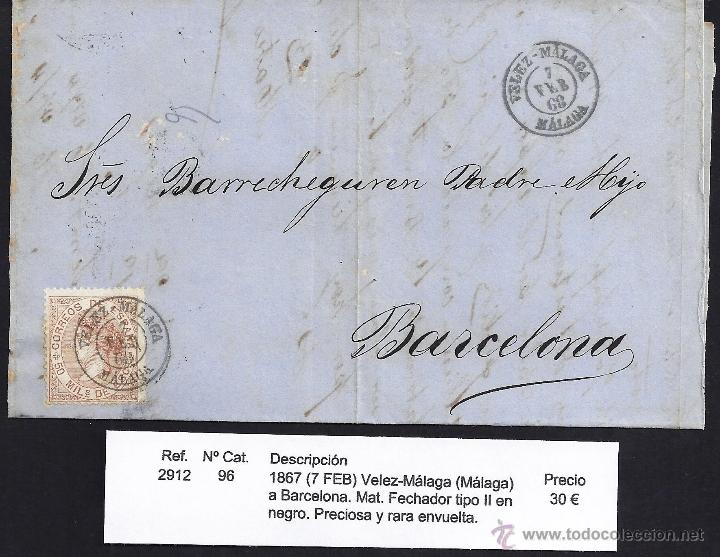 VELEZ-MÁLAGA
7
FEB
68
MÁLAGA
Sres Barrecheguren Padre e Hijo
Barcelona
CORREOS DE ESPAÑA
VELEZ-MÁLAGA
MÁLAGA
50 MILS DE
Ref. Nº Cat. Descripción
2912 96 1867 (7 FEB) Velez-Málaga (Málaga) Precio
a Barcelona. Mat. Fechador tipo II en 30 €
negro. Preciosa y rara envuelta.
www.todocoleccion.net